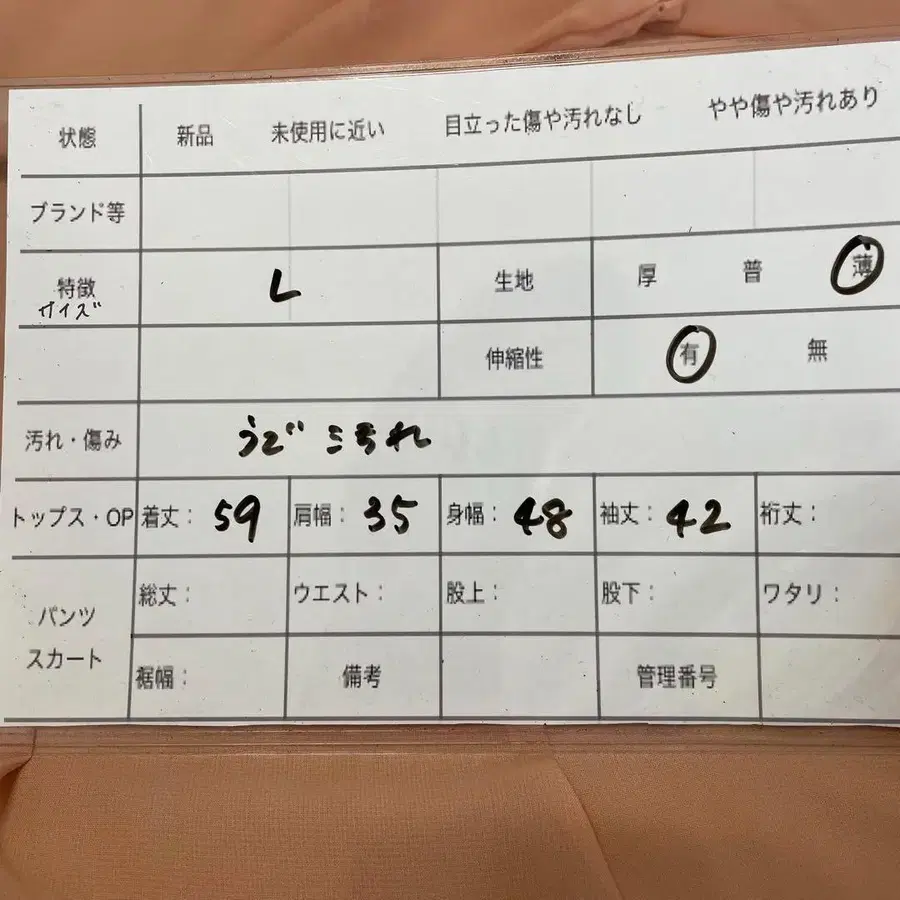 状態 新品 未使用に近い 目立った傷や汚れなし やや傷や汚れあり
ブランド等
特徴 L 生地 厚 普 薄
サイズ
伸縮性 有 無
汚れ・傷み うで 汚れ
トップス・OP 着丈: 59 肩幅: 35 身幅: 48 袖丈: 42 裄丈:
パンツ 総丈: ウエスト: 股上: 股下: ワタリ:
スカート
裾幅: 備考 管理番号